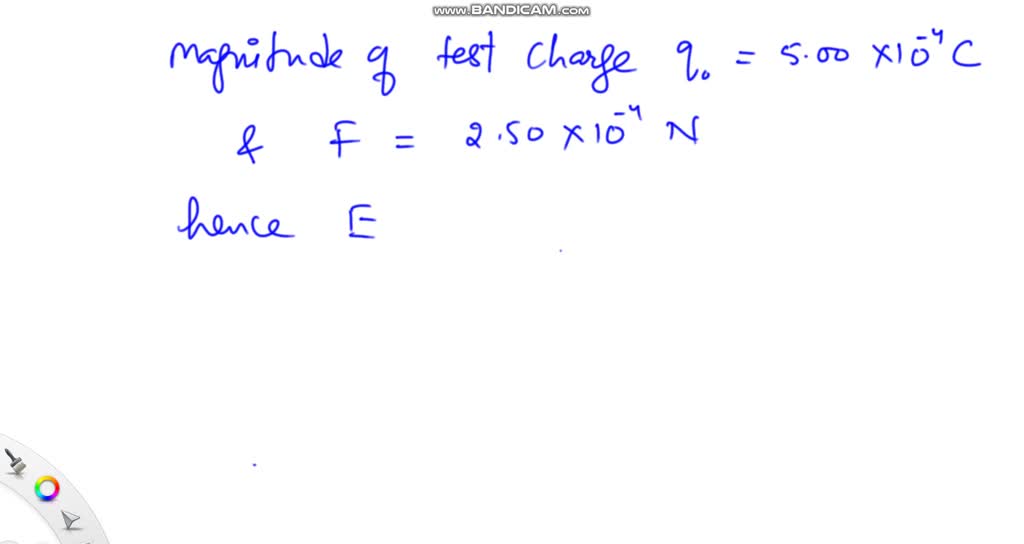 www.BANDICAM.com
Magnitude of test charge q₀ = 5.00 ×10⁻⁴ C
& F = 2.50 ×10⁻⁴ N
hence E